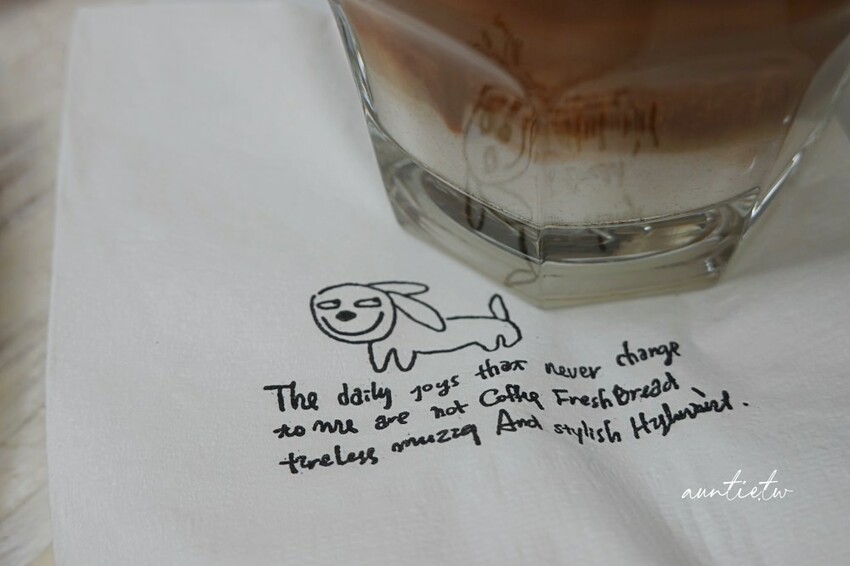 The daily joys that never change
to me are not Coffee Fresh Bread
tireless muzzq And stylish
auntie.tw